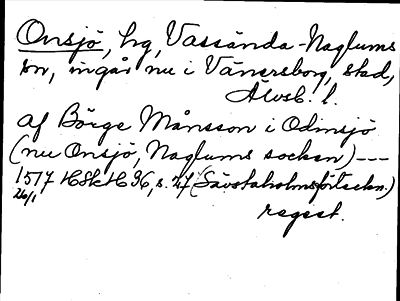 Onsjö, hg, Vassända-Naglums
sn, ingår nu i Vänersborg, stad,
Älvsb. l.
af Börge Månsson i Odinsjö
(nu Onsjö, Naglums socken) ---
1517 HSH 36, s. 27 (Säfstaholmsförteckn.)
26/1
regest.